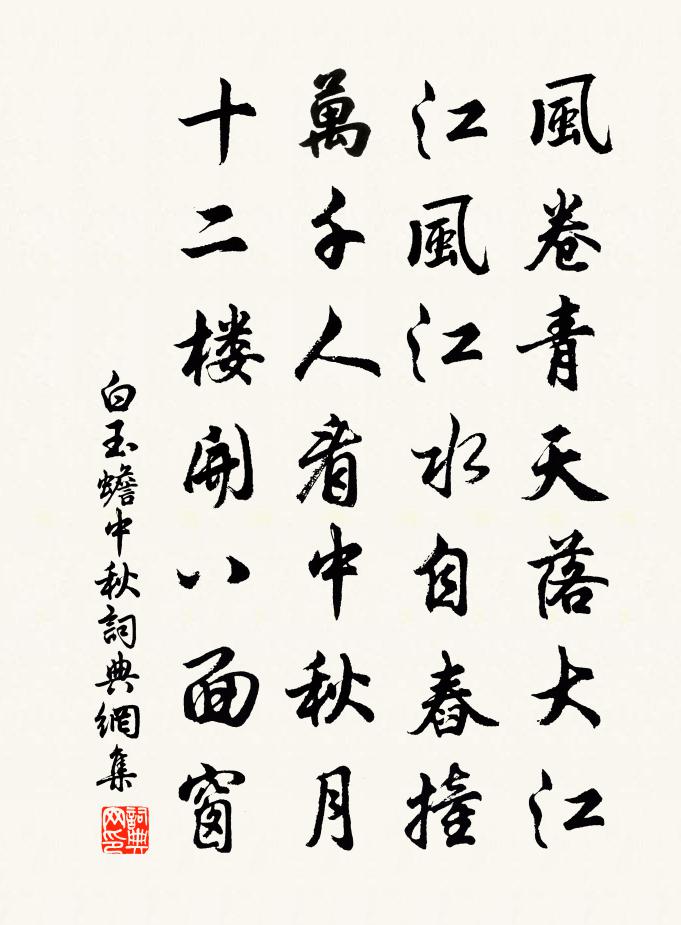 風卷青天落大江
江風江水自舂撞
萬千人看中秋月
十二楼開八面窗
白玉蟾中秋詞典網集
詞典网印